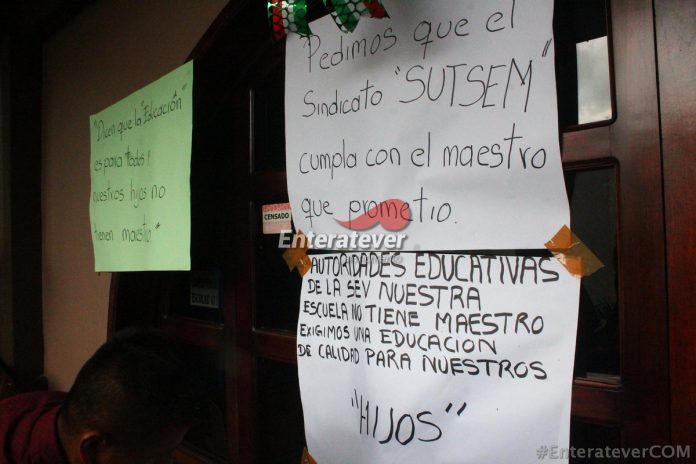 "Dicen que la "Educación"
es para todos!
nuestros hijos no
tienen maestro"
"Pedimos que el
Sindicato "SUTSEM"
cumpla con el maestro
que prometio.
CENSADO
Enteratever
AUTORIDADES EDUCATIVAS
DE LA SEV NUESTRA
ESCUELA NO TIENE MAESTRO
EXIGIMOS UNA EDUCACION
DE CALIDAD PARA NUESTROS
"HIJOS"
#EnterateverCOM